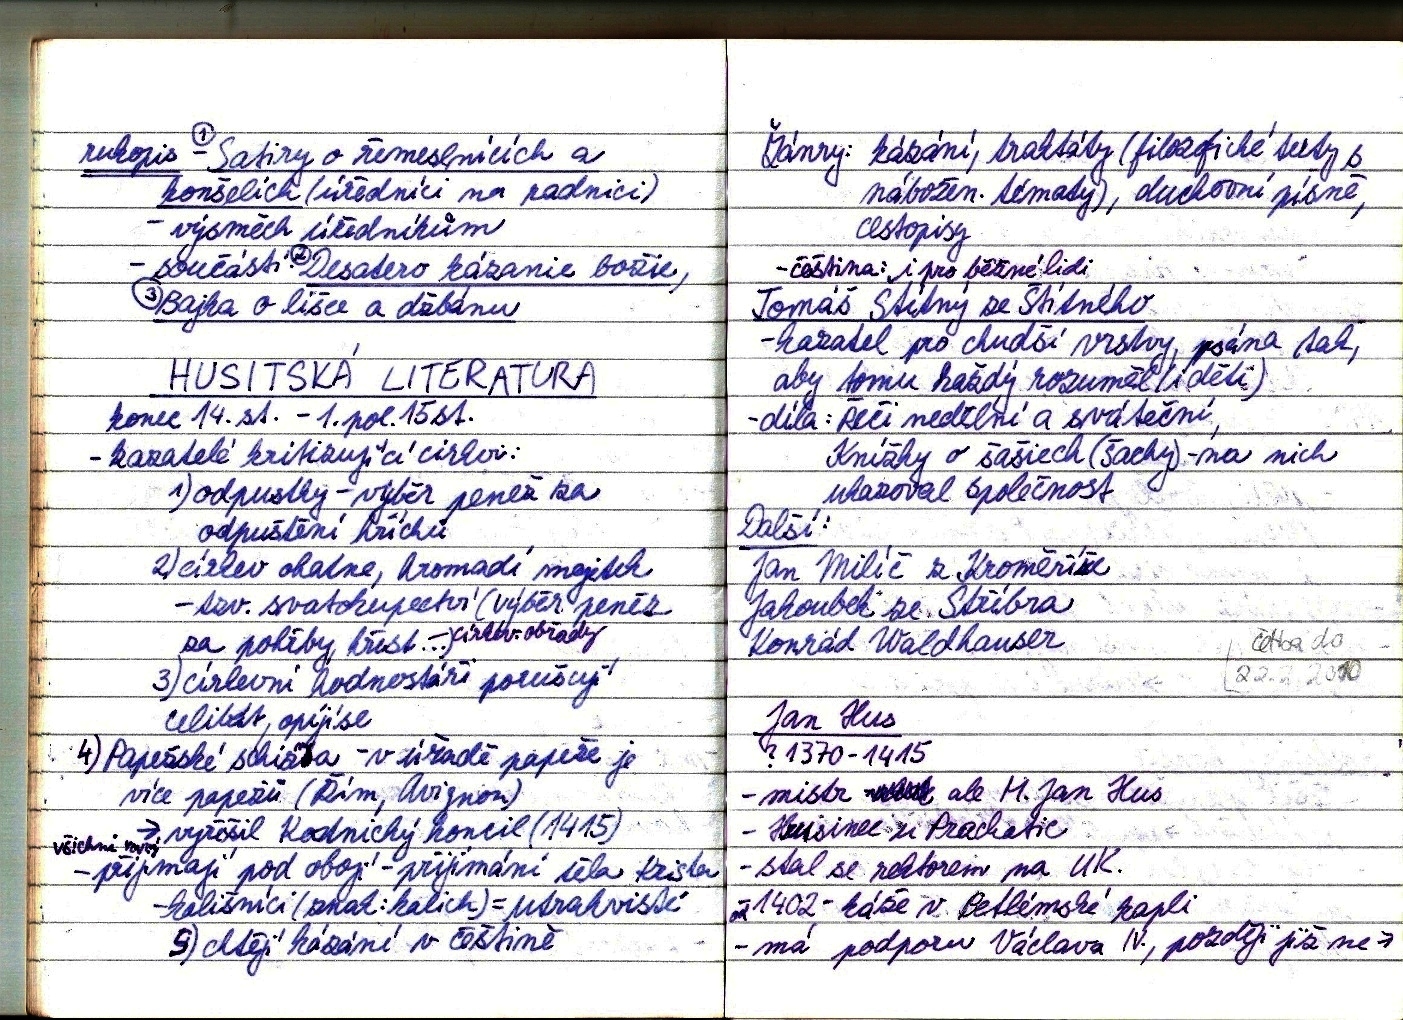 rukopis ① - Satiry o řemeslnících a
konšelích (úředníci na radnici)
- výsměch úředníkům
- součástí: ② Desatero kázanie božie,
③ Bajka o lišce a džbánu
HUSITSKÁ LITERATURA
konec 14. st. - 1. pol. 15 st.
- kazatelé kritizující církev:
1) odpustky - výběr peněz za
odpuštění hříchů
2) církev chatne, hromadí majetek
- tzv. svatokupectví (výběr peněz
za pohřby, křest...) církev. obřady
3) církevní hodnostáři porušují
celibát, opíjí se
4) Papežské schizma - v úřadě papeže je
více papežů (Řím, Avignon)
→ vyřešil Kostnický koncil (1415)
všichni rovni
- přijímají pod obojí - přijímání těla Krista
- kališníci (znak: kalich) = utrakvisté
5) chtějí kázání v češtině
Žánry: kázání, traktáty (filozofické texty s
nábožen. tématy), duchovní písně,
cestopisy
- čeština: i pro běžné lidi
Tomáš Štítný ze Štítného
- kazatel pro chudší vrstvy, psána tak,
aby tomu každý rozuměl (i děti)
- díla: Řeči nedělní a sváteční,
Knížky o šašiech (šachy) - na nich
ukazoval společnost
Další:
Jan Milíč z Kroměříže
Jakoubek ze Stříbra
Konrád Waldhauser
četba do
22.2.2010
Jan Hus
? 1370 - 1415
- mistr ale M. Jan Hus
- Husinec u Prachatic
- stal se rektorem na UK.
1402 - káže v Betlémské kapli
- má podporu Václava IV., později již ne →